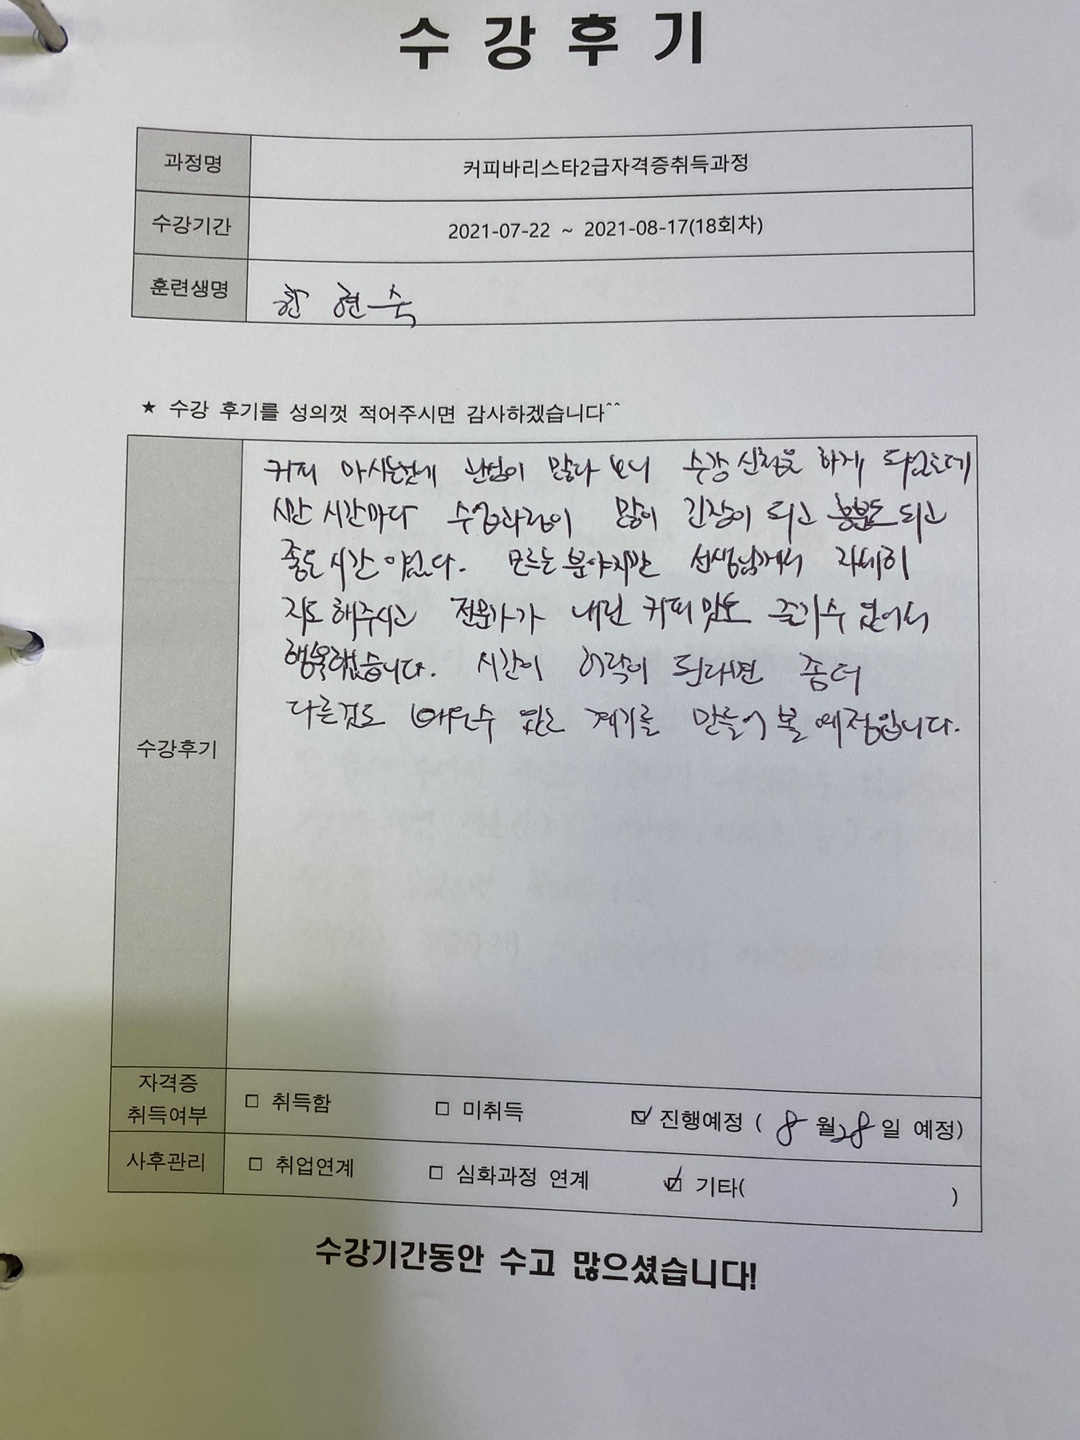 수강후기
과정명 커피바리스타2급자격증취득과정
수강기간 2021-07-22 ~ 2021-08-17(18회차)
훈련생명 한현숙
★ 수강 후기를 성의껏 적어주시면 감사하겠습니다^^
수강후기
커피 마시는것에 관심이 많다 보니 수강 신청을 하게 되었는데
시간마다 수업과정이 많이 긴장이 되고 흥분도 되고
좋은 시간 이었다. 모르는 분야지만 선생님께서 자세히
지도 해주시고 전문가가 내린 커피 맛도 즐길수 있어서
행복했습니다. 시간이 허락이 된다면 좀더
다른것도 배울수 있는 계기를 만들어 볼 예정입니다.
자격증 취득여부 □ 취득함 □ 미취득 ☑ 진행예정 ( 8월 28일 예정)
사후관리 □ 취업연계 □ 심화과정 연계 ☑ 기타( )
수강기간동안 수고 많으셨습니다!